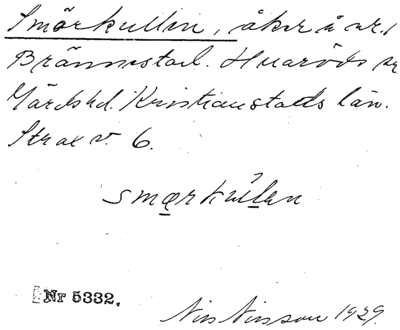 Smörkullin, åker å nr 1
Brännestad. Huaröds sn
Gärds hd. Kristianstads län.
Strax v. 6.
smœrkúlen
Nr 5332.
Nils Nilsson 1929.